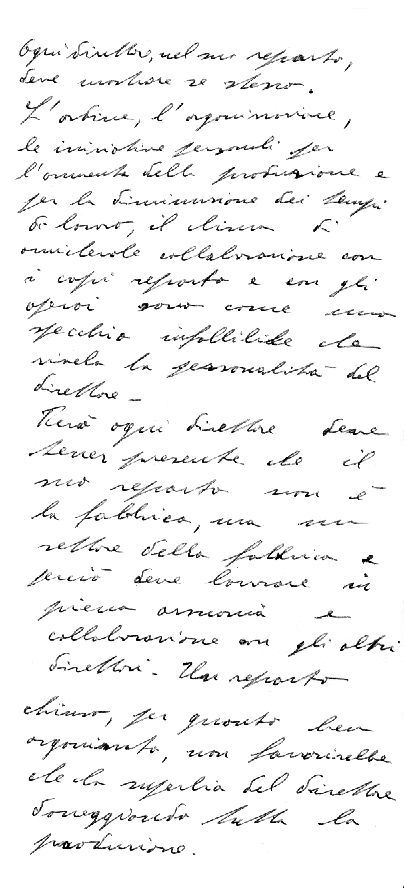 Ogni direttore, nel suo reparto,
deve mostrare se stesso.
L'ordine, l'organizzazione,
le iniziative personali per
l'aumento della produzione e
per la diminuzione dei tempi
di lavoro, il clima di
amichevole collaborazione con
i capi reparto e con gli
operai sono come uno
specchio infallibile che
rivela la personalità del
direttore -
Però ogni direttore deve
tener presente che il
suo reparto non è
la fabbrica, ma un
settore della fabbrica e
perciò deve lavorare in
piena armonia e
collaborazione con gli altri
direttori - Un reparto
chiuso, per quanto ben
organizzato, non favorirebbe
che la superbia del direttore
danneggiando tutta la
produzione.